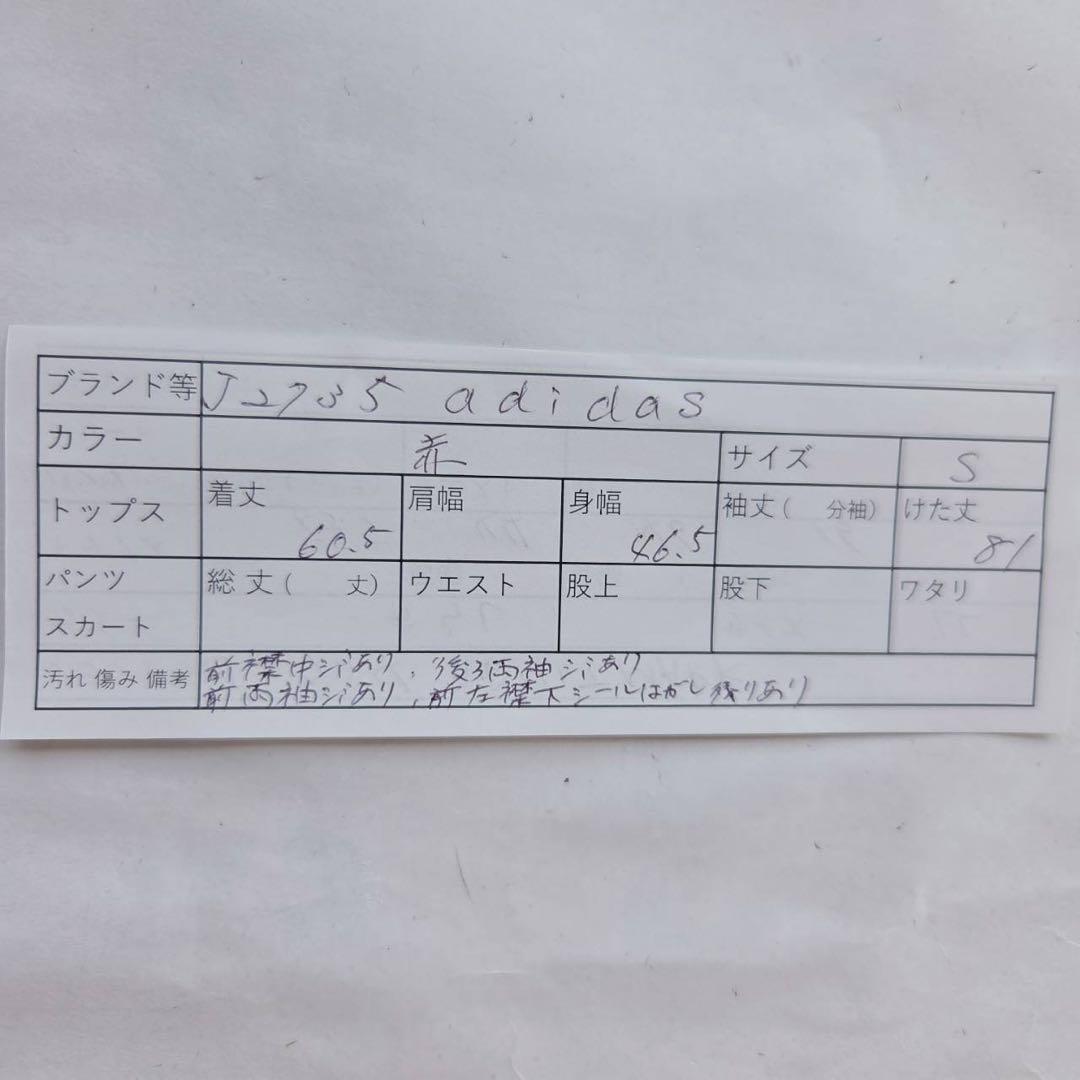 ブランド等 J2735 adidas
カラー 赤 サイズ S
トップス 着丈 60.5 肩幅 身幅 46.5 袖丈( 分袖) けた丈 81
パンツ スカート 総丈( 丈) ウエスト 股上 股下 ワタリ
汚れ 傷み 備考 前襟中シミあり、後ろ両袖シミあり
前両袖シミあり、前左襟下シールはがし残りあり